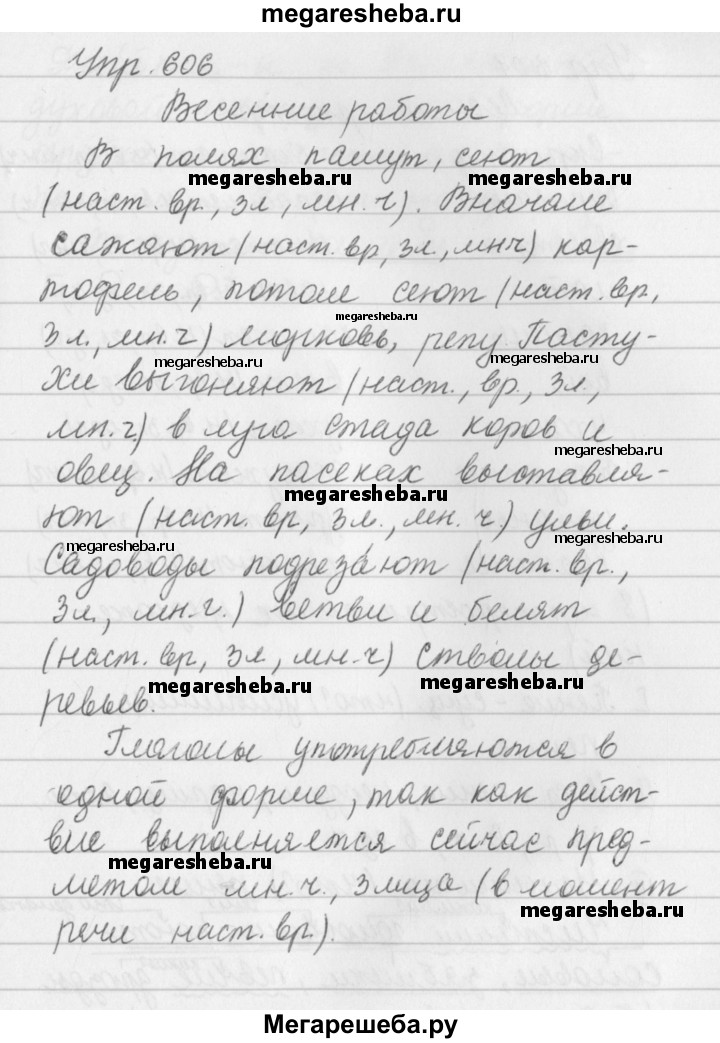 megaresheba.ru
Упр. 606
Весенние работы
В полях пашут, сеют
megaresheba.ru megaresheba.ru
(наст. вр., 3л., мн. ч). Вначале
сажают (наст. вр, 3л., мнч) кар-
тофель, потом сеют (наст. вр,
megaresheba.ru
3л., мн. ч) морковь, репу. Пасту-
megaresheba.ru megaresheba.ru
хи выгоняют (наст., вр., 3л.,
мн. ч.) в луга стада коров и
megaresheba.ru
овец. На пасеках выставля-
megaresheba.ru
ют (наст. вр, 3л., мн. ч.) ульи.
megaresheba.ru megaresheba.ru
Садоводы подрезают (наст. вр.,
3л., мн. ч.) ветви и белят
(наст. вр, 3л, мн. ч) стволы де-
megaresheba.ru megaresheba.ru
ревьев.
Глаголы употребляются в
одной форме, так как дейст-
вие выполняется сейчас пред-
megaresheba.ru
метом мн. ч., 3 лица (в момент
megaresheba.ru
речи наст. вр.).
Мегарешеба.ру